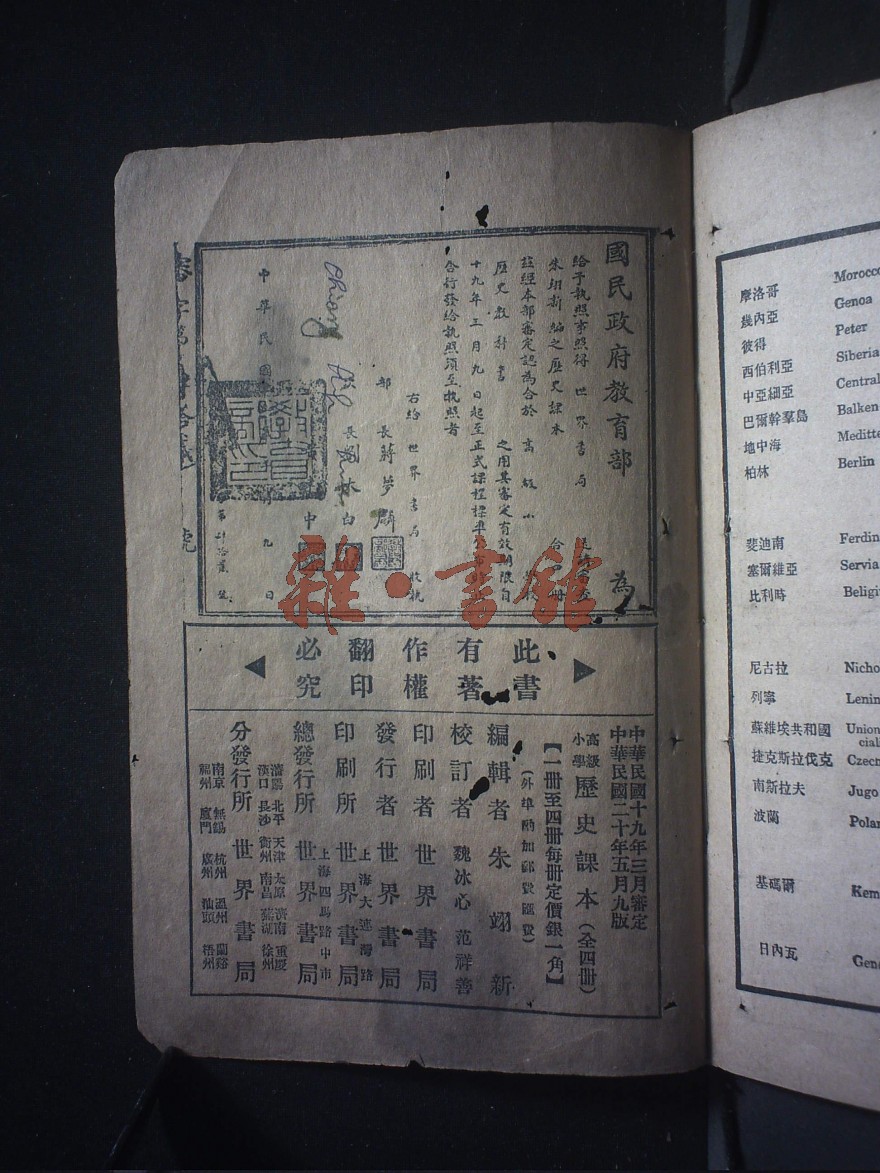 國民政府教育部
為
給予執照事照得 世界書局
朱翊新編之歷史課本
茲經本部審定認為合於 高級小
歷史教科書 之用其審定有效期限自
十九年三月九日起至正式課程標準
合行發給執照須至執照者
右給世界書局收執
部長蔣夢麟
中華民國
九日
Chiang
雜·書館
此書有著作權翻印必究
中華民國十九年三月審定
中華民國二十年五月九版
高級小學歷史課本(全四冊)
【一冊至四冊每冊定價銀一角】
(外埠酌加郵費匯費)
編輯者 朱翊新
校訂者 魏冰心 范祥善
印刷者 世界書局
發行者 世界書局
上海大連灣路
印刷所 世界書局
上海四馬路中市
總發行所 世界書局
瀋陽 北平 天津 太原 濟南 重慶
漢口 長沙 衡州 南昌 蕪湖 徐州
分發行所 世界書局
南京 無錫 杭州 溫州 蘭谿
福州 廈門 廣州 汕頭 梧州
摩洛哥 Morocco
幾內亞 Genoa
彼得 Peter
西伯利亞 Siberia
中亞細亞 Central
巴爾幹羣島 Balken
地中海 Meditte
柏林 Berlin
斐迪南 Ferdin
塞爾維亞 Servia
比利時 Belgi
尼古拉 Nicho
列寧 Lenin
蘇維埃共和國 Union
cial
捷克斯拉伐克 Czech
南斯拉夫 Jugo
波蘭 Polan
基碼爾 Kem
日內瓦 Gen